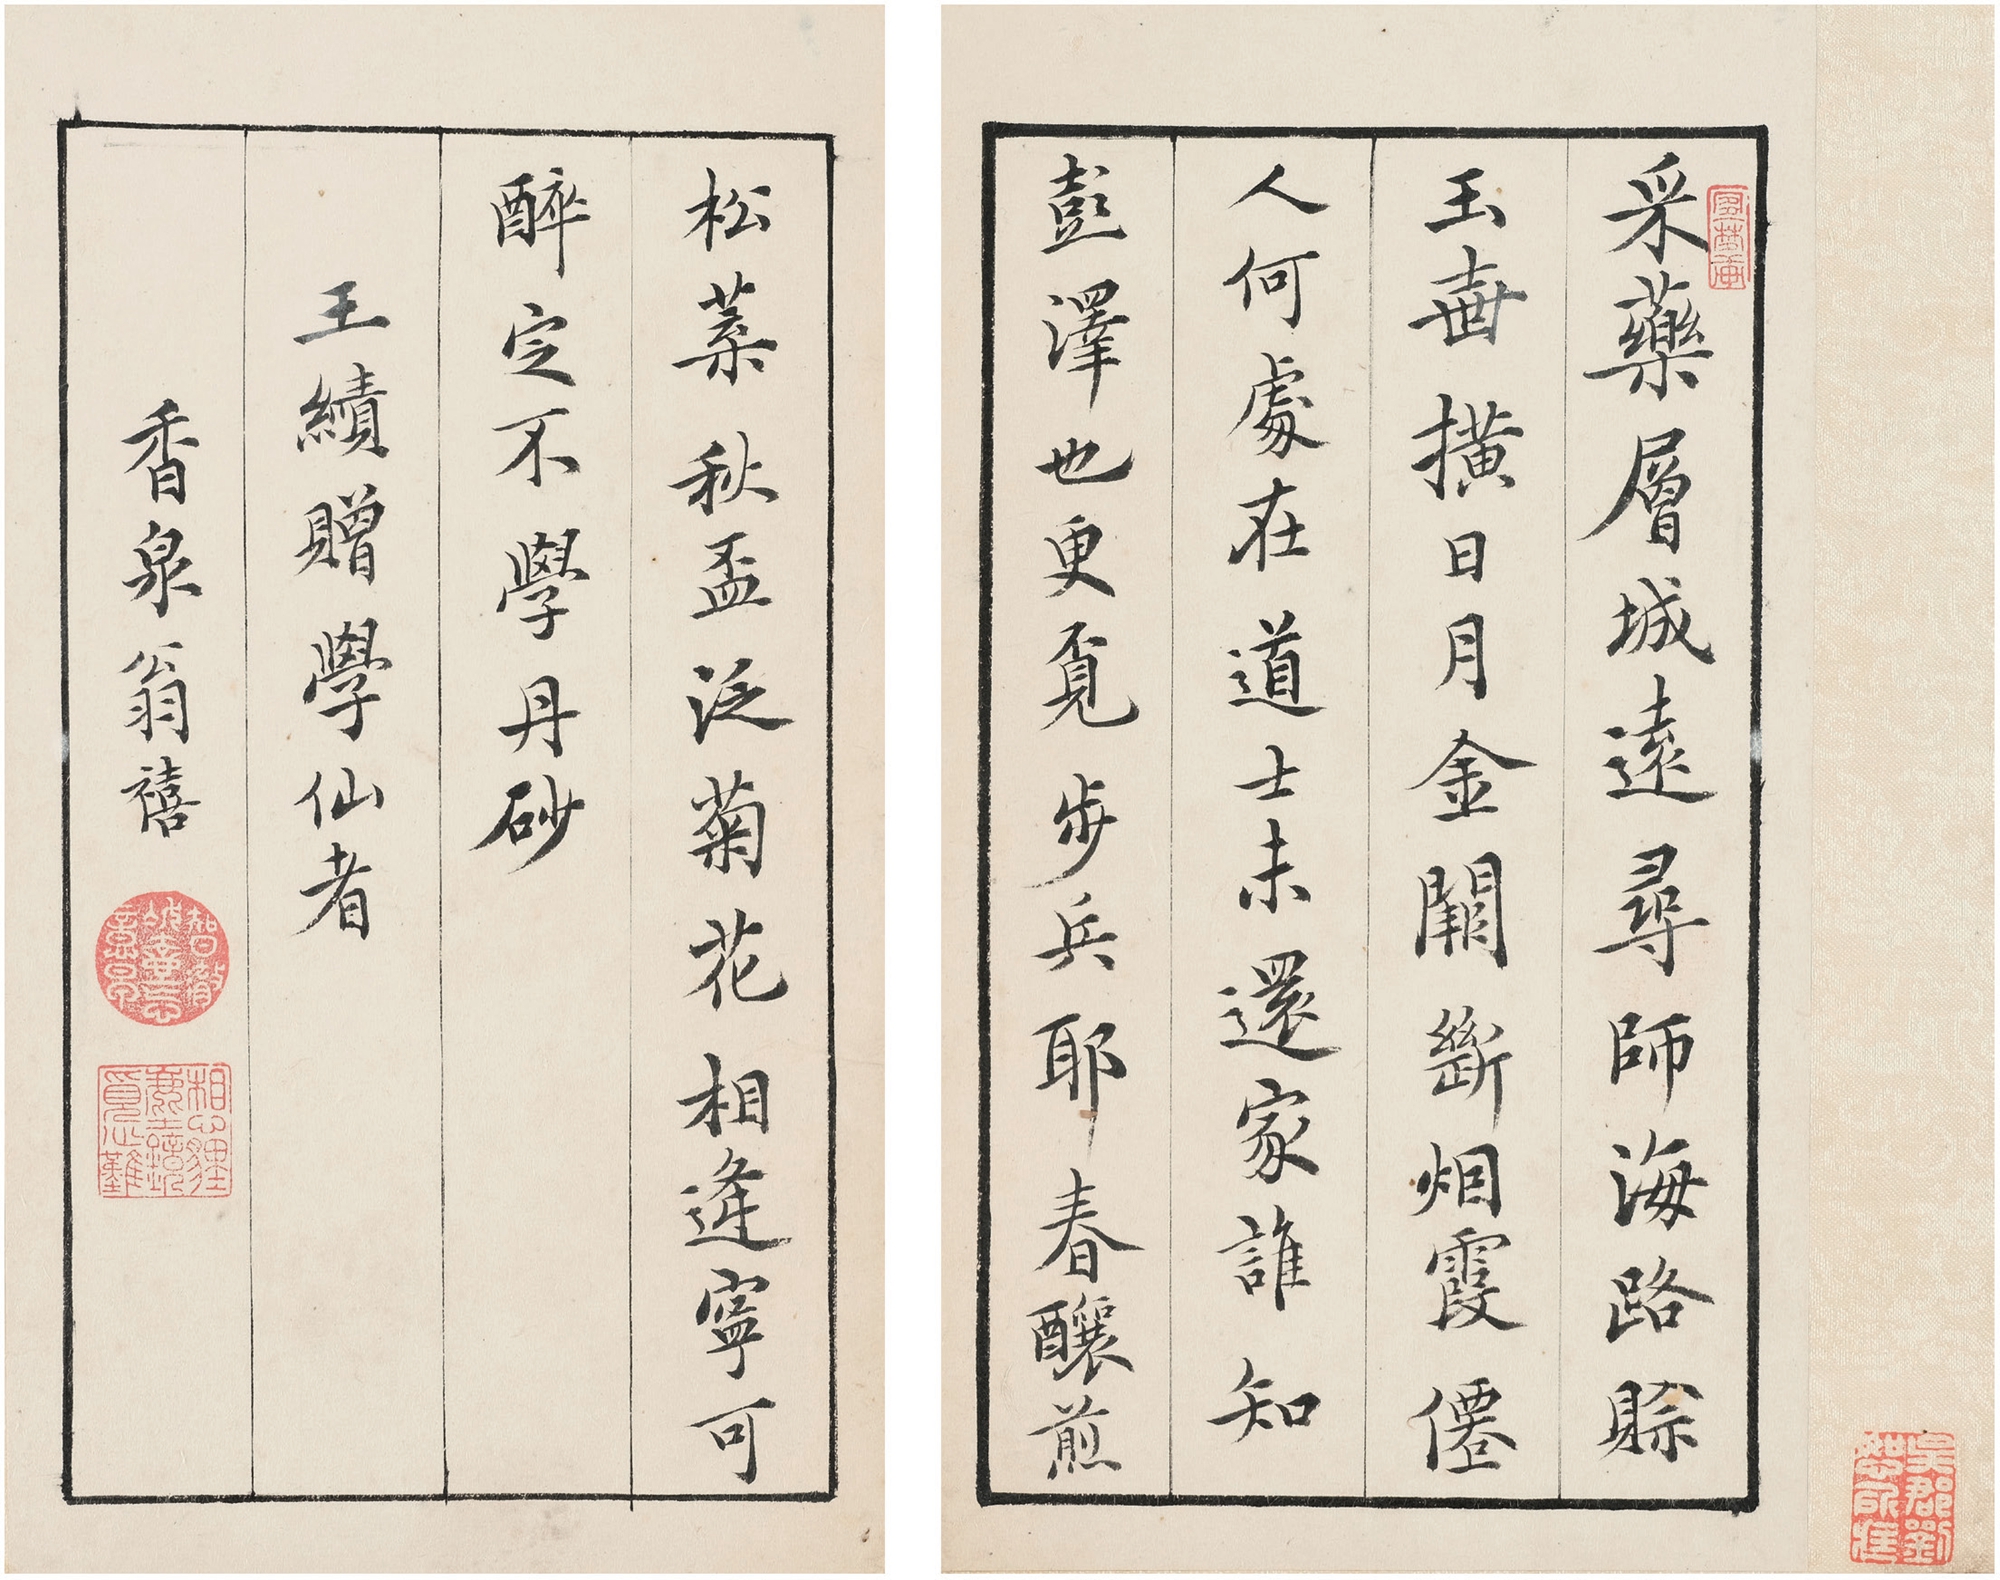 采藥層城遠尋師海路賒
玉壺横日月金闕斷烟霞僊
人何處在道士未還家誰知
彭澤也更覓步兵耶春釀煎
松葉秋盃泛菊花相逢寧可
醉定不學丹砂
王績贈學仙者
香泉翁禧